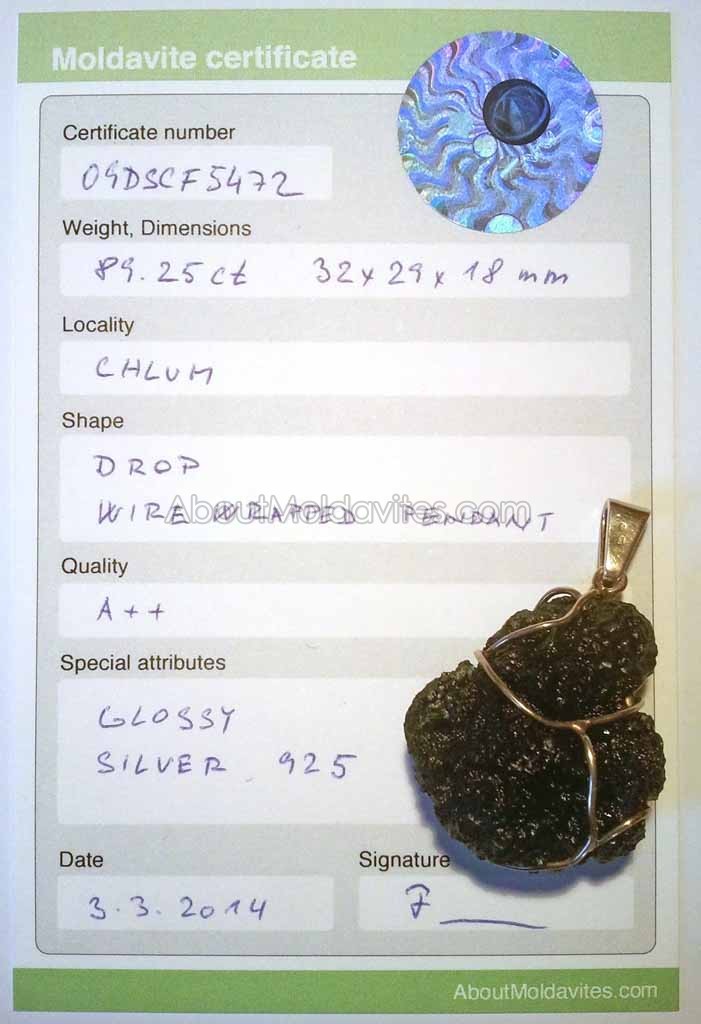 Moldavite certificate
Certificate number
09DSCF5472
Weight, Dimensions
89.25 ct 32 x 29 x 18 mm
Locality
CHLUM
Shape
DROP
WIRE WRAPPED PENDANT
AboutMoldavites.com
Quality
A++
Special attributes
GLOSSY
SILVER 925
Date
Signature
3.3.2014
AboutMoldavites.com